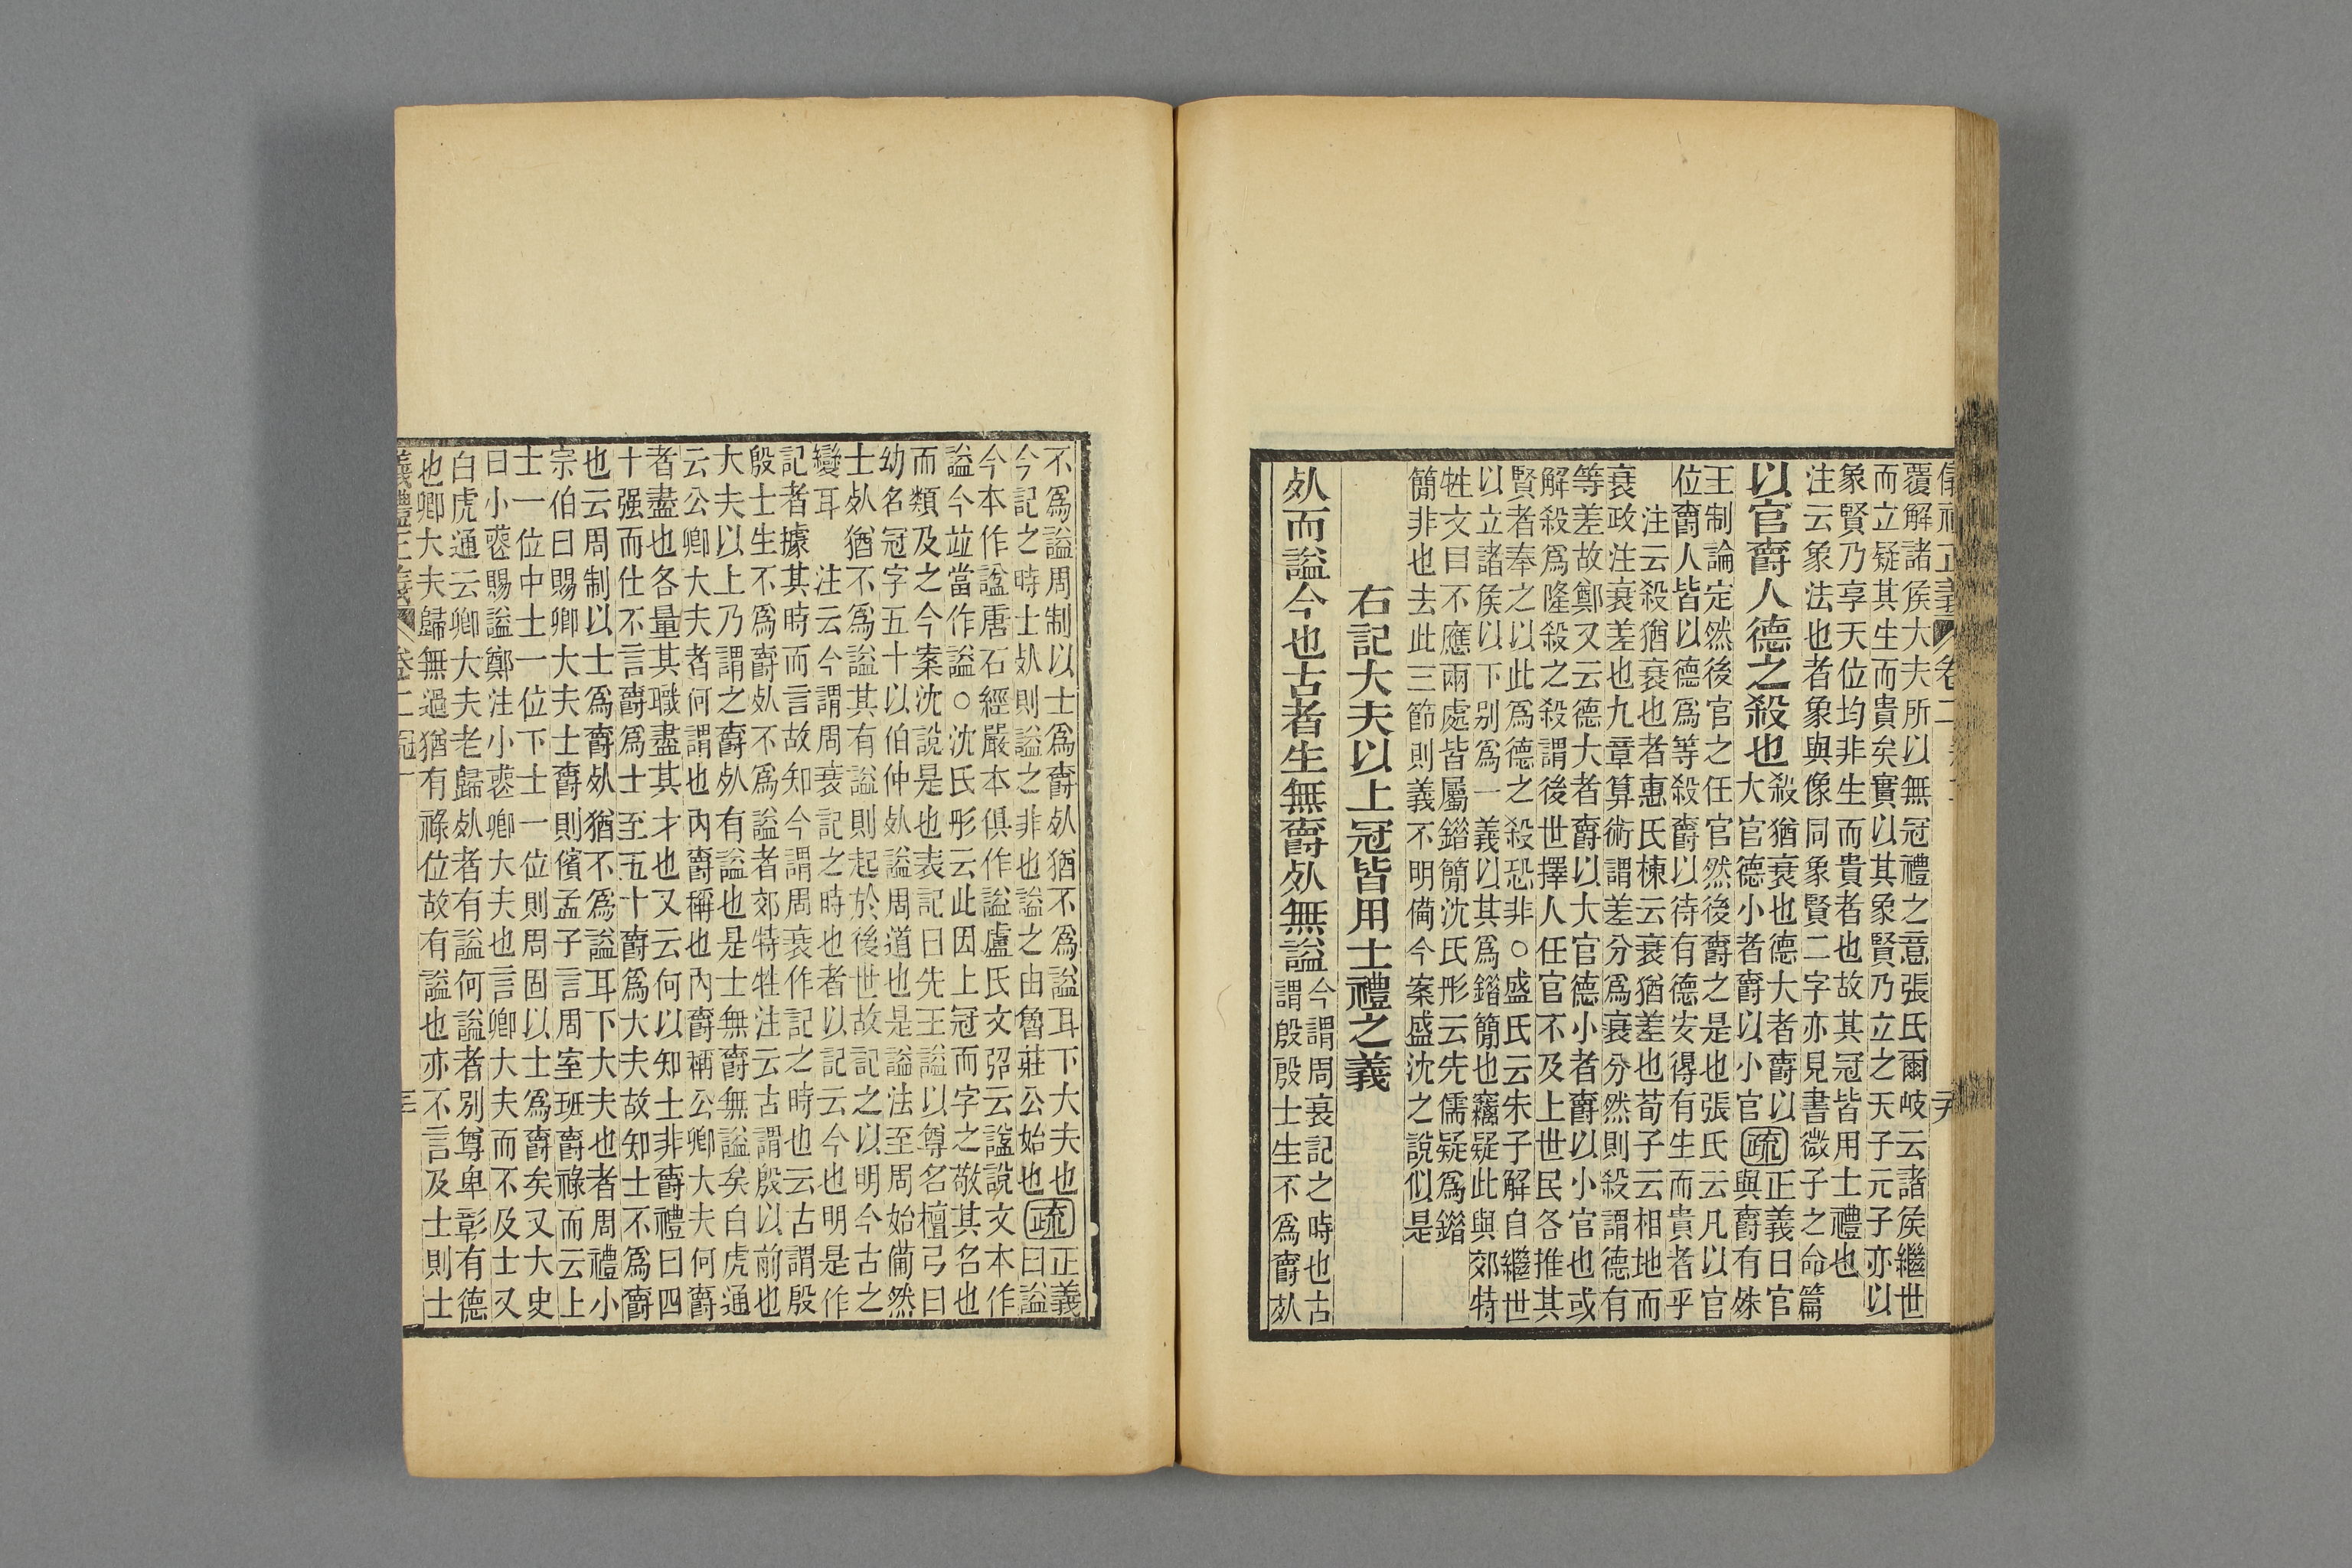 覆解諸矦大夫所以無冠禮之意張氏爾岐云諸矦繼世
而立疑其生而貴矣實以其象賢乃立之天子元子亦以
象賢乃享天位均非生而貴者也故其冠皆用士禮也
注云象法也者象與像同象賢二字亦見書微子之命篇
以官爵人德之殺也
殺猶衰也德大者爵以
大官德小者爵以小官
疏
正義曰官
與爵有殊
王制論定然後官之任官然後爵之是也張氏云凡以官
位爵人皆以德爲等殺爵以待有德安得有生而貴者乎
注云殺猶衰也者惠氏棟云衰猶差也荀子云相地而
衰政注衰差也九章算術謂差分爲衰分然則殺謂德有
等差故鄭又云德大者爵以大官德小者爵以小官也或
解殺爲隆殺之殺謂後世擇人任官不及上世民各推其
賢者奉之以此爲德之殺恐非○盛氏云朱子解自繼世
以立諸矦以下别爲一義以其爲錯簡也竊疑此與郊特
牲文目不應兩處皆屬錯簡沈氏彤云先儒疑爲錯
簡非也去此三節則義不明僃今案盛沈之說似是
右記大夫以上冠皆用士禮之義
𣦸而諡今也古者生無爵𣦸無諡
今謂周衰記之時也古
謂殷殷士生不爲爵𣦸
不爲諡周制以士爲爵𣦸猶不爲諡耳下大夫也
今記之時士𣦸則諡之非也諡之由魯莊公始也
疏
正義
曰諡
今本作諡唐石經嚴本俱作諡盧氏文弨云諡說文本作
諡今竝當作諡○沈氏彤云此因上冠而字之敬其名也
而類及之今案沈說是也表記曰先王諡以尊名檀弓曰
幼名冠字五十以伯仲𣦸諡周道也是諡法至周始僃然
士𣦸猶不爲諡其有諡則起於後世故記之以明今古之
變耳　注云今謂周衰記之時也者以記云今也明是作
記者據其時而言故知今謂周衰作記之時也云古謂殷
殷士生不爲爵𣦸不爲諡者郊特牲注云古謂殷以前也
大夫以上乃謂之爵𣦸有諡也是士無爵無諡矣白虎通
云公卿大夫者何謂也內爵稱也內爵稱公卿大夫何爵
者盡也各量其職盡其才也又云何以知士非爵禮曰四
十强而仕不言爵爲士至五十爵爲大夫故知士不爲爵
也云周制以士爲爵𣦸猶不爲諡耳下大夫也者周禮小
宗伯曰賜卿大夫士爵則儐孟子言周室班爵祿而云上
士一位中士一位下士一位則周固以士爲爵矣又大史
曰小喪賜諡鄭注小喪卿大夫也言卿大夫而不及士又
白虎通云卿大夫老歸𣦸者有諡何諡者别尊卑彰有德
也卿大夫歸無過猶有祿位故有諡也亦不言及士則士